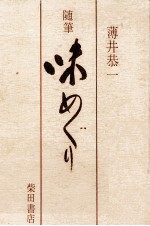 薄井恭一
随筆
味めぐり
柴田書店